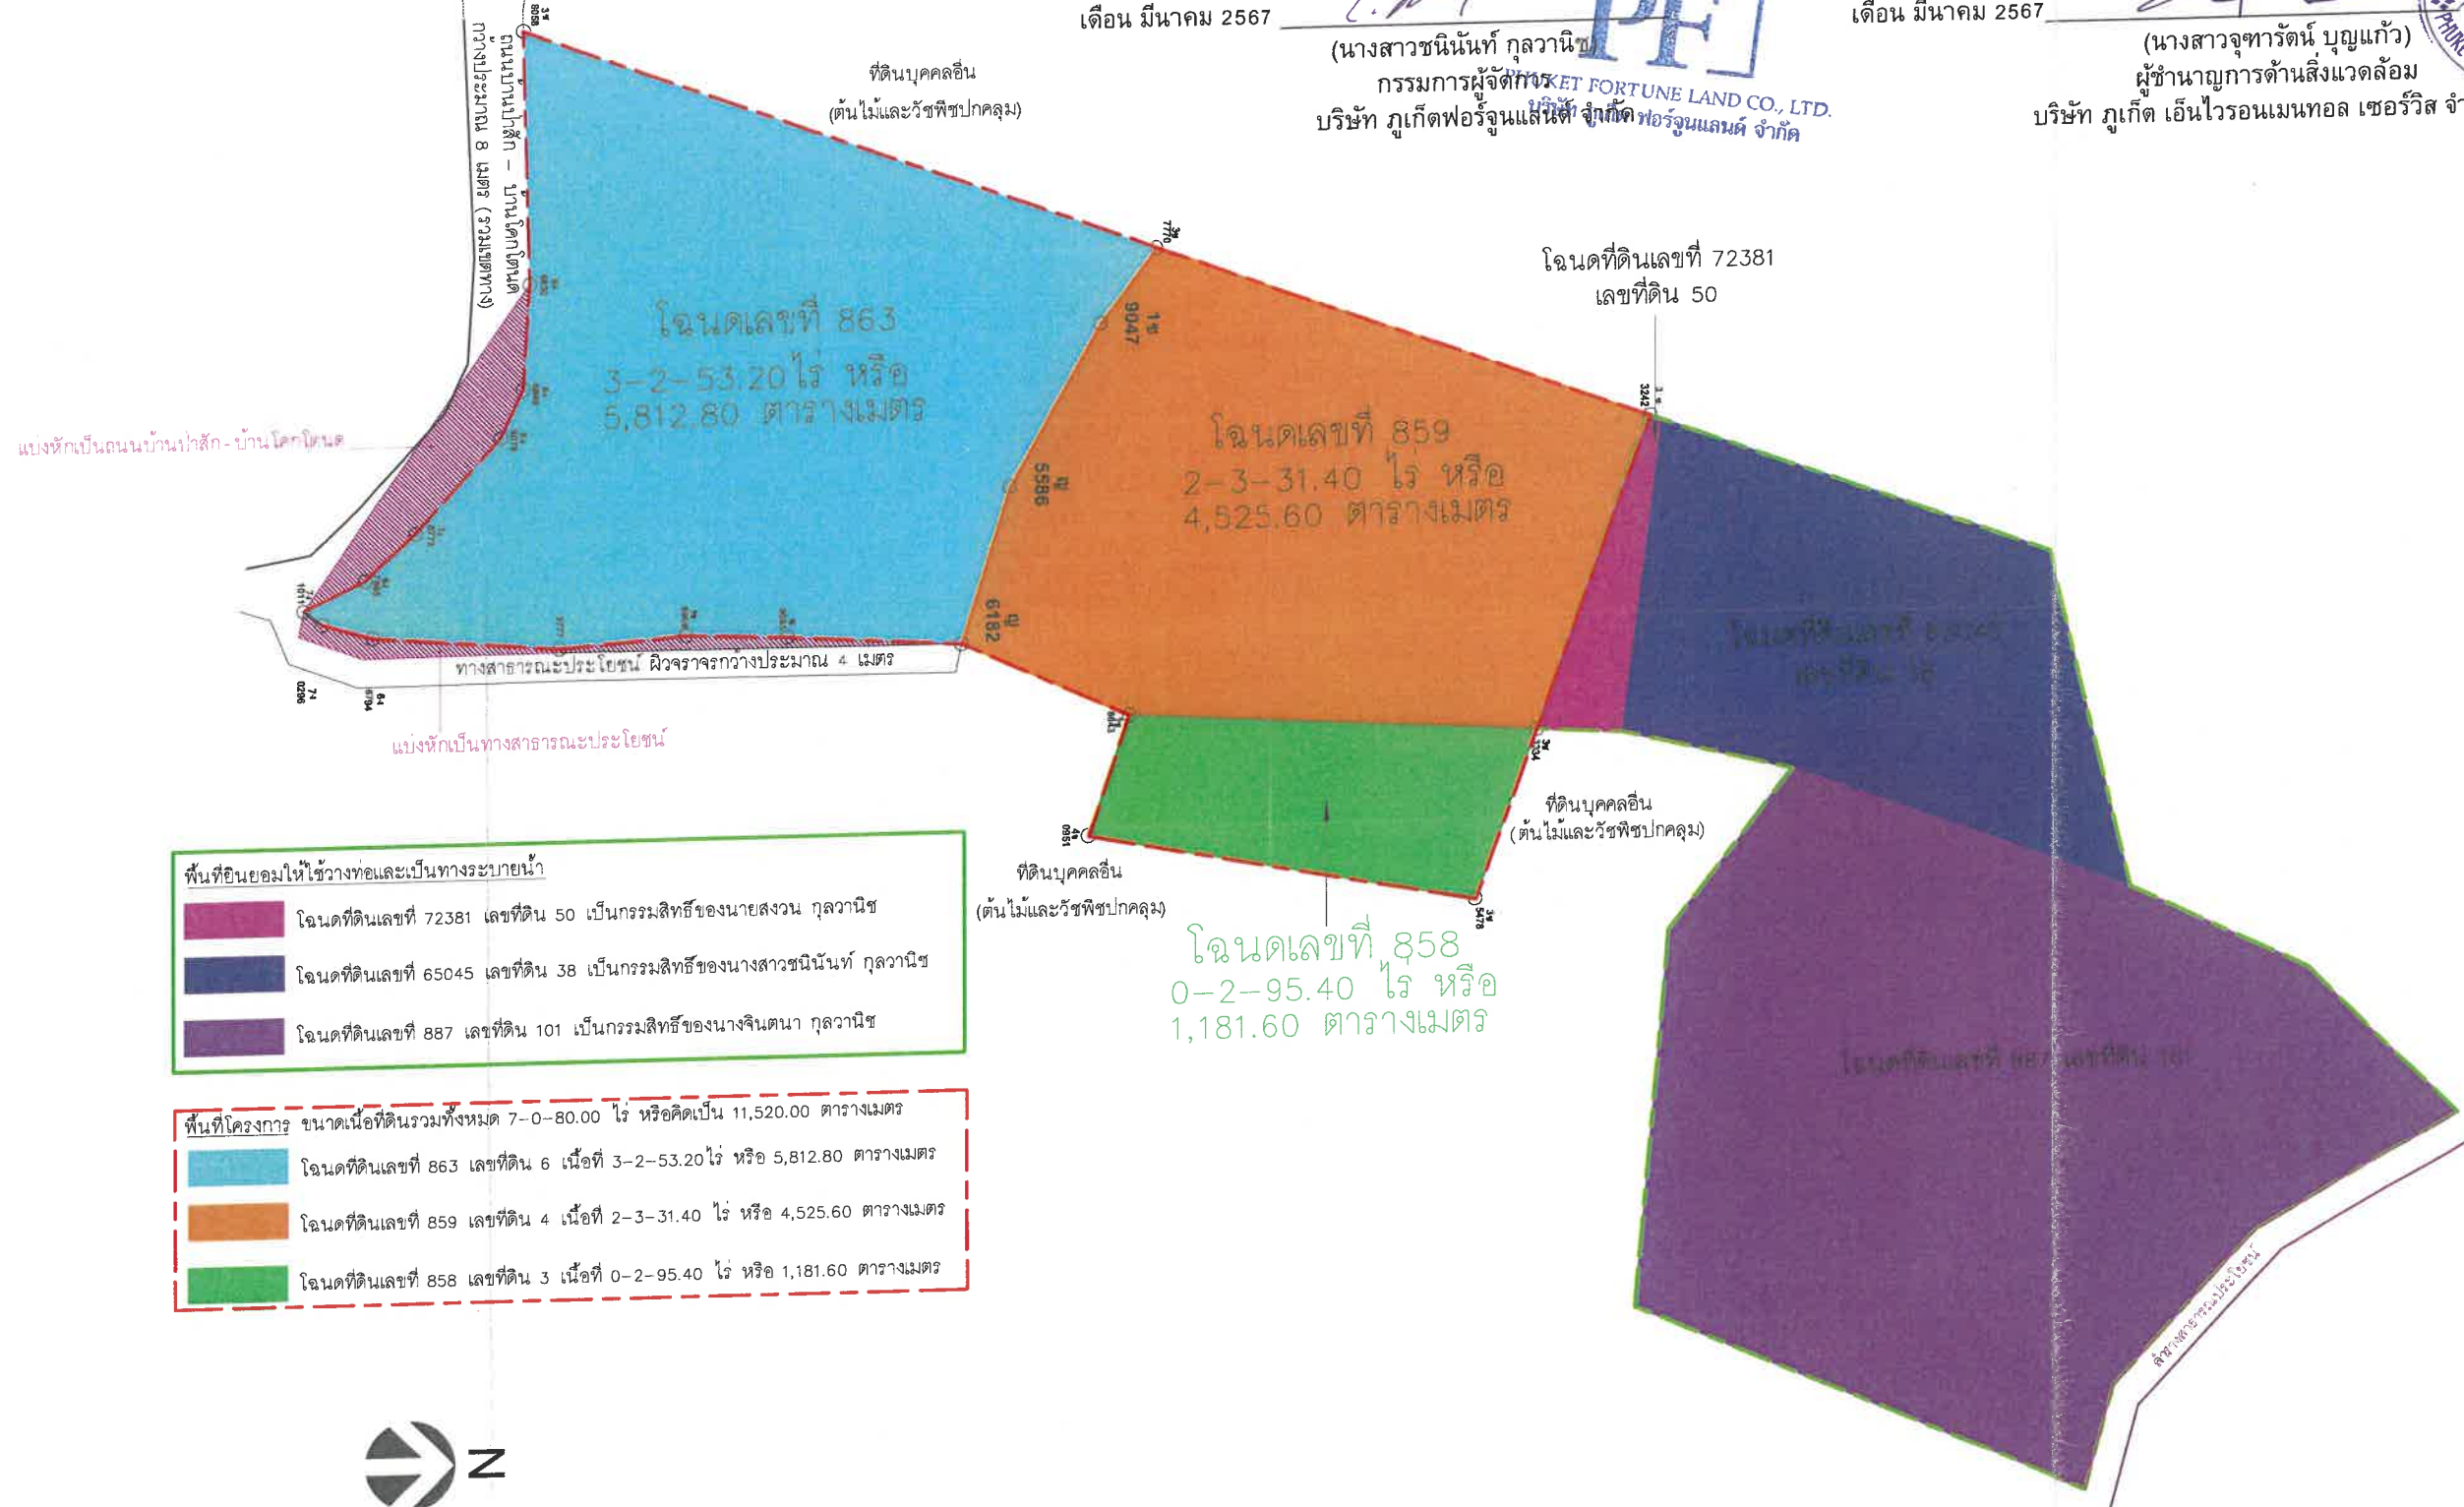 เดือน มีนาคม 2567
(นางสาวชนินันท์ กุลวานิช)
กรรมการผู้จัดการ
บริษัท ภูเก็ตฟอร์จูนแลนด์ จำกัด
PF
PHUKET FORTUNE LAND CO., LTD.
บริษัท ภูเก็ต ฟอร์จูนแลนด์ จำกัด
เดือน มีนาคม 2567
(นางสาวจุฑารัตน์ บุญแก้ว)
ผู้ชำนาญการด้านสิ่งแวดล้อม
บริษัท ภูเก็ต เอ็นไวรอนเมนทอล เซอร์วิส จำ
ถนนบ้านป่าสัก - บ้านโคกโตนด
กว้างประมาณ 8 เมตร (รวมเขตทาง)
3ช
8058
ที่ดินบุคคลอื่น
(ต้นไม้และวัชพืชปกคลุม)
3ช
7770
1ช
9047
ญ
5586
ญ
6182
3242
โฉนดที่ดินเลขที่ 72381
เลขที่ดิน 50
โฉนดเลขที่ 863
3-2-53.20 ไร่ หรือ
5,812.80 ตารางเมตร
โฉนดเลขที่ 859
2-3-31.40 ไร่ หรือ
4,525.60 ตารางเมตร
แบ่งหักเป็นถนนบ้านป่าสัก-บ้านโคกโตนด
โฉนดที่ดินเลขที่ 65045
เลขที่ดิน 38
ทางสาธารณะประโยชน์ ผิวจราจรกว้างประมาณ 4 เมตร
แบ่งหักเป็นทางสาธารณะประโยชน์
1011
0296
6794
3234
0951
5478
ที่ดินบุคคลอื่น
(ต้นไม้และวัชพืชปกคลุม)
ที่ดินบุคคลอื่น
(ต้นไม้และวัชพืชปกคลุม)
โฉนดเลขที่ 858
0-2-95.40 ไร่ หรือ
1,181.60 ตารางเมตร
โฉนดที่ดินเลขที่ 887 เลขที่ดิน 101
ลำรางสาธารณประโยชน์
พื้นที่ยินยอมให้ใช้วางท่อและเป็นทางระบายน้ำ
โฉนดที่ดินเลขที่ 72381 เลขที่ดิน 50 เป็นกรรมสิทธิ์ของนายสงวน กุลวานิช
โฉนดที่ดินเลขที่ 65045 เลขที่ดิน 38 เป็นกรรมสิทธิ์ของนางสาวชนินันท์ กุลวานิช
โฉนดที่ดินเลขที่ 887 เลขที่ดิน 101 เป็นกรรมสิทธิ์ของนางจินตนา กุลวานิช
พื้นที่โครงการ ขนาดเนื้อที่ดินรวมทั้งหมด 7-0-80.00 ไร่ หรือคิดเป็น 11,520.00 ตารางเมตร
โฉนดที่ดินเลขที่ 863 เลขที่ดิน 6 เนื้อที่ 3-2-53.20 ไร่ หรือ 5,812.80 ตารางเมตร
โฉนดที่ดินเลขที่ 859 เลขที่ดิน 4 เนื้อที่ 2-3-31.40 ไร่ หรือ 4,525.60 ตารางเมตร
โฉนดที่ดินเลขที่ 858 เลขที่ดิน 3 เนื้อที่ 0-2-95.40 ไร่ หรือ 1,181.60 ตารางเมตร
N